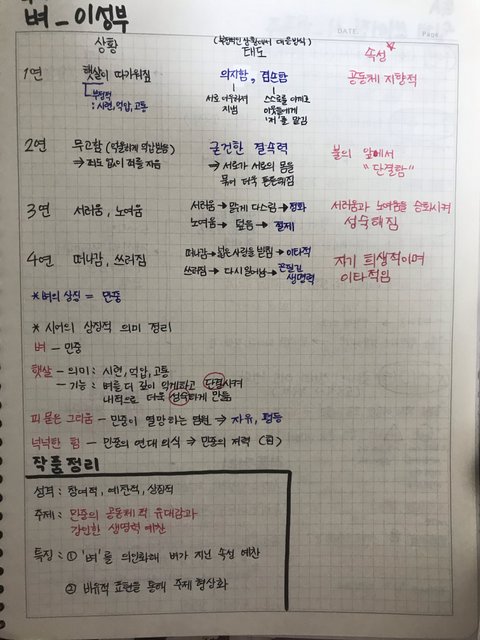 벼 - 이성부
DATE. Page.
상황 (부정적인 상황에서 대응방식) 태도 속성
1연 햇살이 따가워짐 의지함, 겸손함 공동체 지향적
부정적
: 시련, 억압, 고통
서로 어우러져 지범
스스로를 아끼고 이웃들에게 '저'를 맡김
2연 무고함 (억울하게 억압받음) 굳건한 결속력 불의 앞에서
⇒ 죄도 없이 죄를 지음 ⇒ 서로가 서로의 몸을 묶어 더욱 튼튼해짐 "단결함"
3연 서러움, 노여움 서러움 → 맑게 다스림 → 정화 서러움과 노여움을 승화시켜
노여움 → 덮음 → 절제 성숙해짐
4연 떠나감, 쓰러짐 떠나감 → 넓은 사랑을 남김 → 이타적 자기 희생적이며
쓰러짐 → 다시 일어남 → 끈질긴 생명력 이타적임
*벼의 상징 = 민중
* 시어의 상징적 의미 정리
벼 - 민중
햇살 - 의미 : 시련, 억압, 고통
- 기능 : 벼를 더 깊이 익게하고 단결시켜
내적으로 더욱 성숙하게 만듦
피 묻은 그리움 - 민중이 열망하는 염원 ⇒ 자유, 평등
넉넉한 힘 - 민중의 연대 의식 ⇒ 민중의 저력
작품정리
성격 : 참여적, 예찬적, 상징적
주제 : 민중의 공동체적 유대감과
강인한 생명력 예찬
특징 : ① '벼'를 의인화해 벼가 지닌 속성 예찬
② 비유적 표현을 통해 주제 형상화